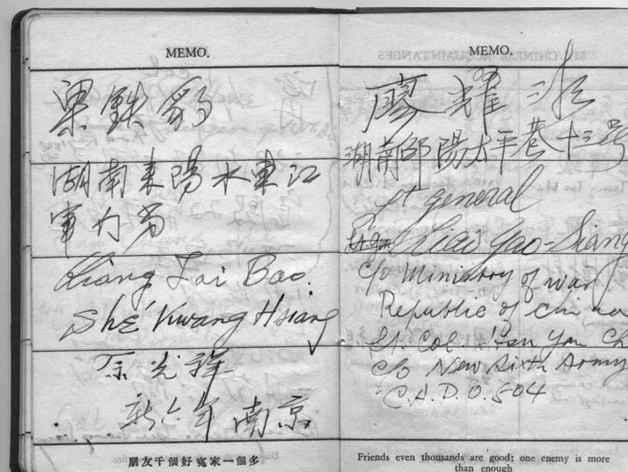 MEMO.
梁鉄豹
湖南耒陽水東江
Liang Tai Bao.
Shé Kwang Hsiang
光祥
新六軍 南京
朋友千個好冤家一個多
MEMO.
廖耀湘
湖南邵陽太平巷十三号
Lt general
Liao Yao-Siang
c/o Ministry of war
Republic of China
Lt. Col.
c/o New Sixth Army
C.A.D.O. 504
Friends even thousands are good; one enemy is more
than enough